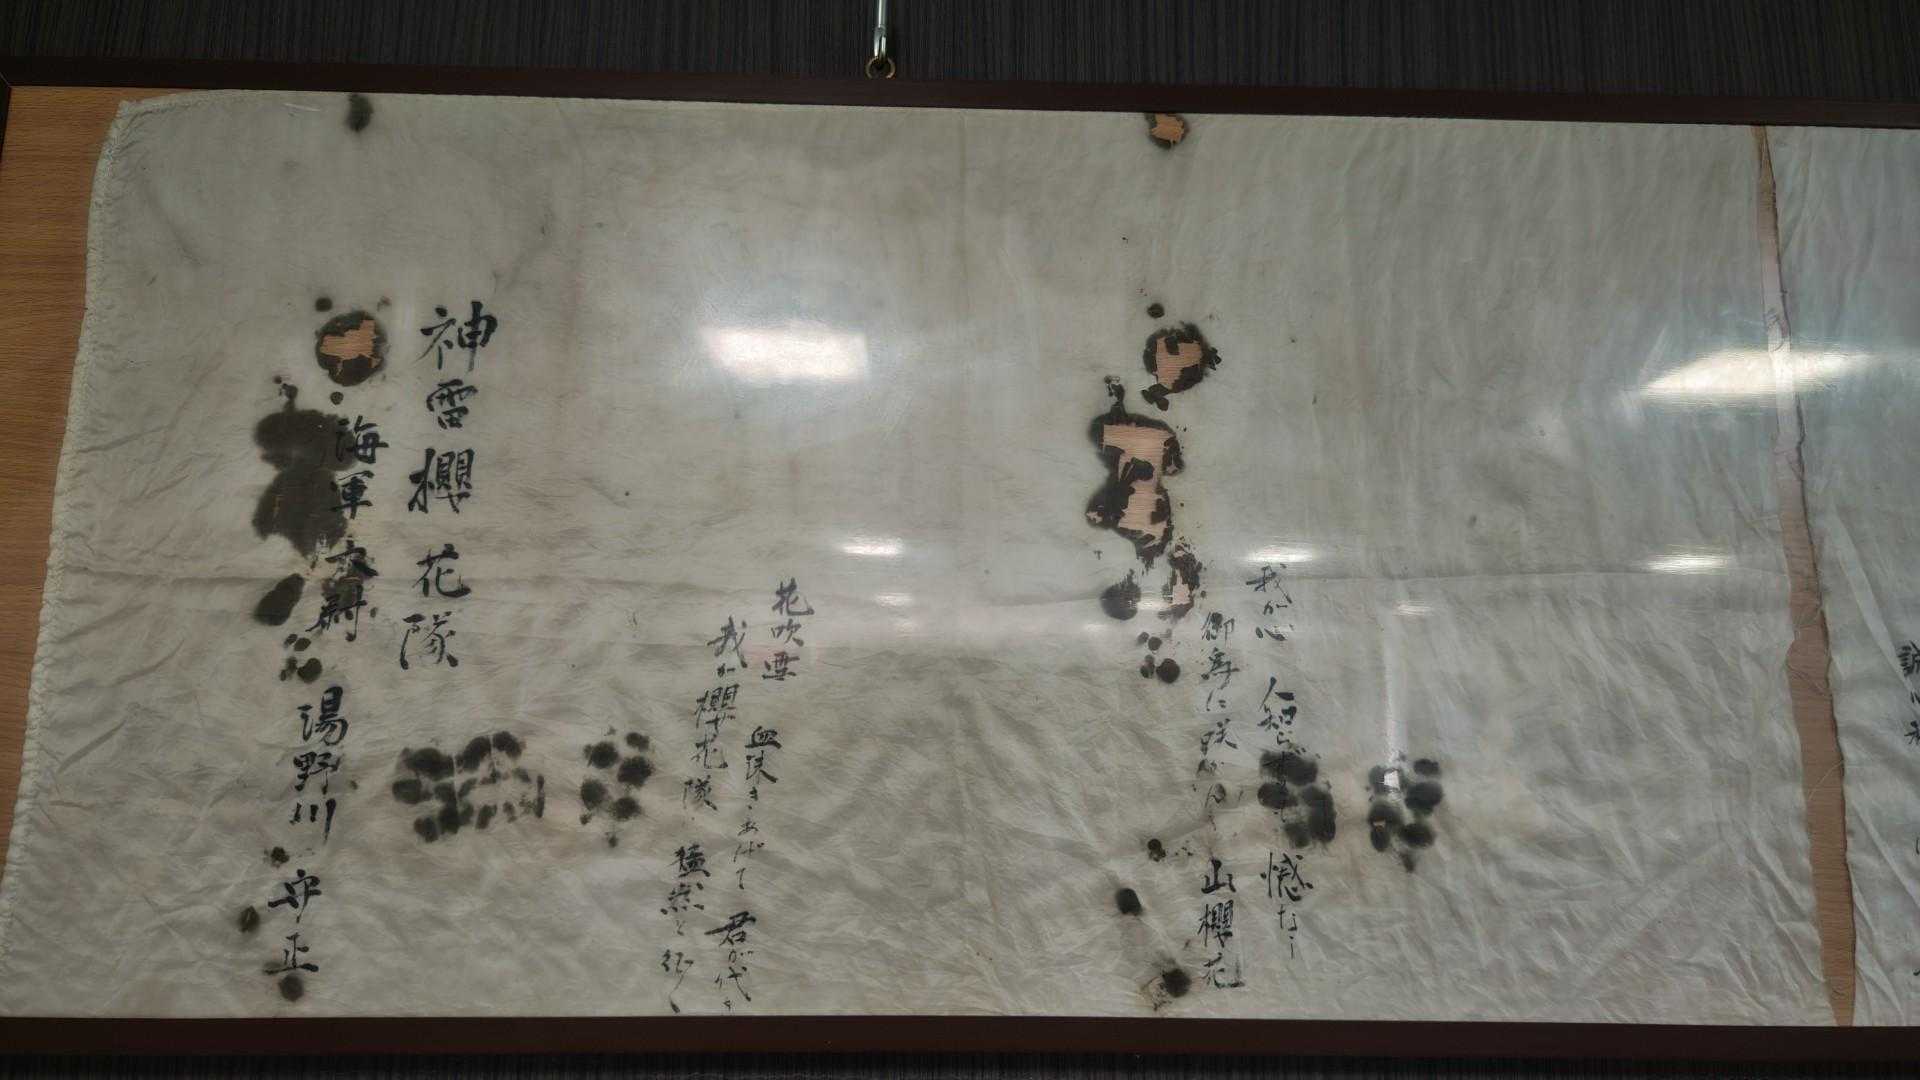 我が心 人知らず 憾なし
御為に咲かん 山櫻花
花吹雪 血沫きあげて 君が代
我が櫻花隊 猛然と征く
神雷櫻花隊
海軍大尉 湯野川守正